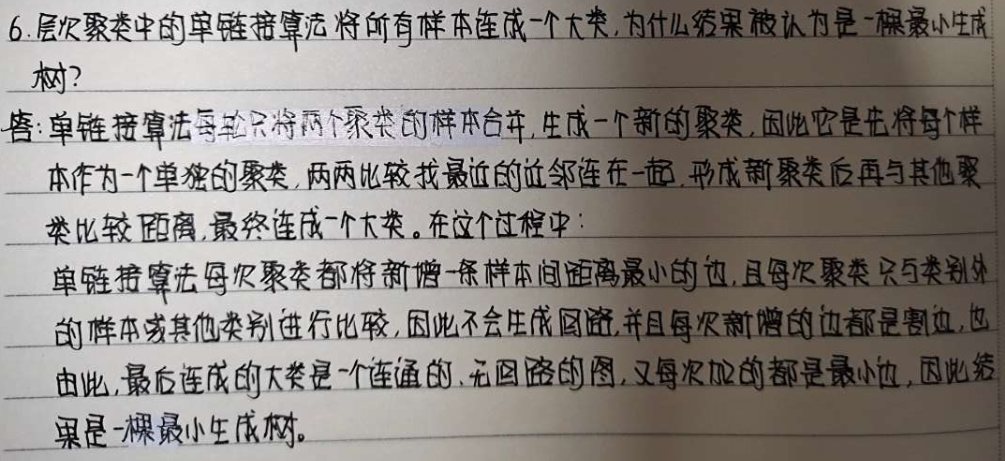 6.层次聚类中的单链接算法将所有样本连成一个大类,为什么结果被认为是一棵最小生成
树?
答:单链接算法每轮只将两个聚类的样本合并,生成一个新的聚类,因此它是先将每个样
本作为一个单独的聚类,两两比较找最近的近邻连在一起,形成新聚类后再与其他聚
类比较距离,最终连成一个大类。在这个过程中:
单链接算法每次聚类都将新增一条样本间距离最小的边,且每次聚类只与类别外
的样本或其他类别进行比较,因此不会生成回路,并且每次新增的边都是割边,也
由此,最后连成的大类是一个连通的、无回路的图,又每次加的都是最小边,因此结
果是一棵最小生成树。